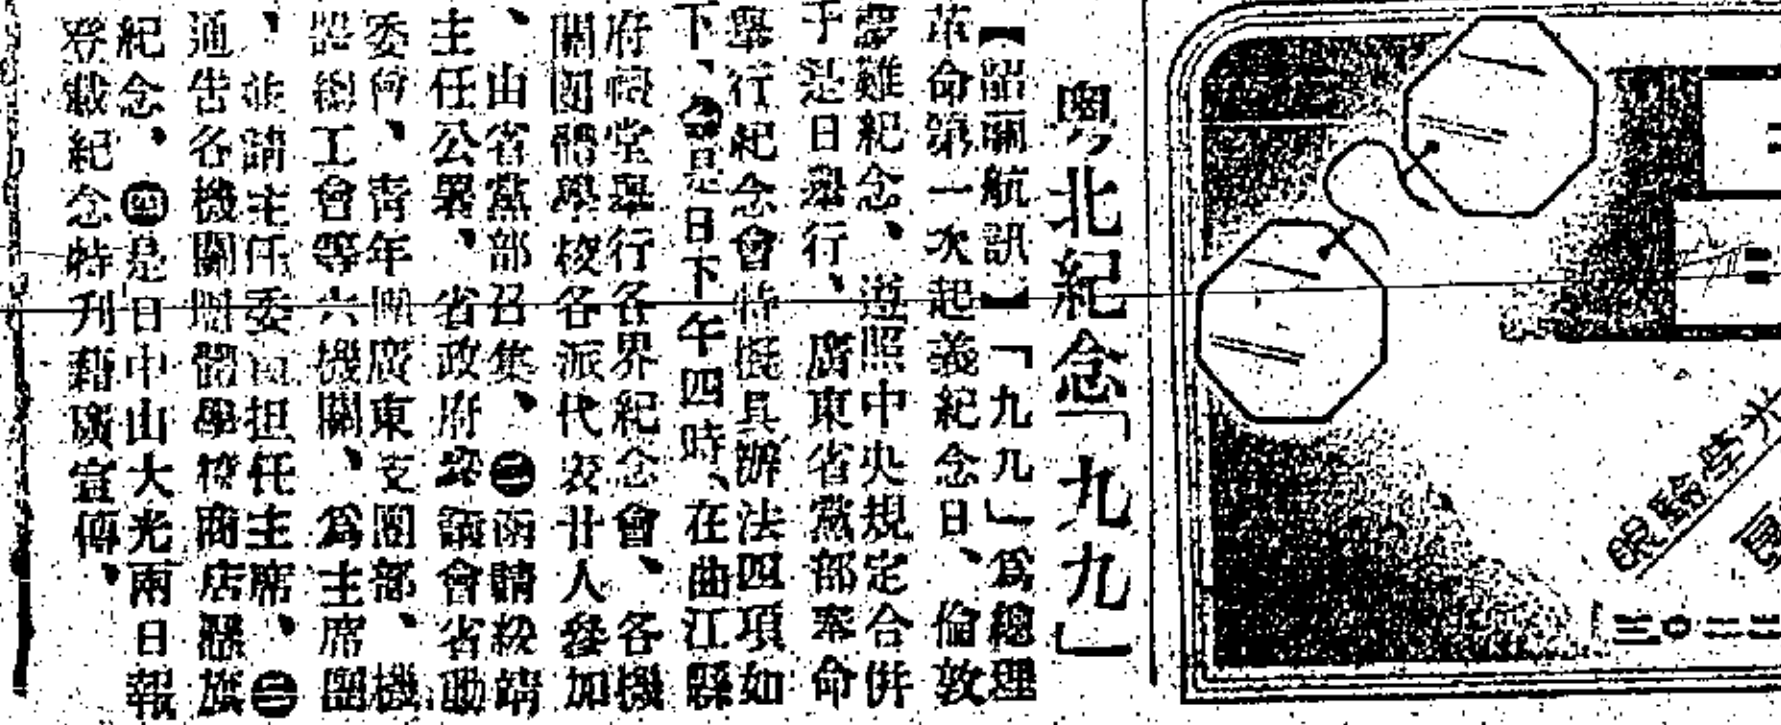 粵北紀念「九九」
【韶關航訊】「九九」爲總理
革命第一次起義紀念日、倫敦
蒙難紀念、遵照中央規定合併
于是日舉行、廣東省黨部奉命
舉行紀念會特擬具辦法四項如
下、㊀是日下午四時、在曲江縣
府禮堂舉行各界紀念會、各機
關團體學校各派代表廿人參加
、由省黨部召集、㊁函請綏靖
主任公署、省政府參議會省動
委會、青年團廣東支團部、機
器總工會等六機關、爲主席團
、並請主任委員担任主席、㊂
通告各機關團體學校商店懸旗
紀念、㊃是日中山大光兩日報
登載紀念特刊藉廣宣傳、
光學驗眼